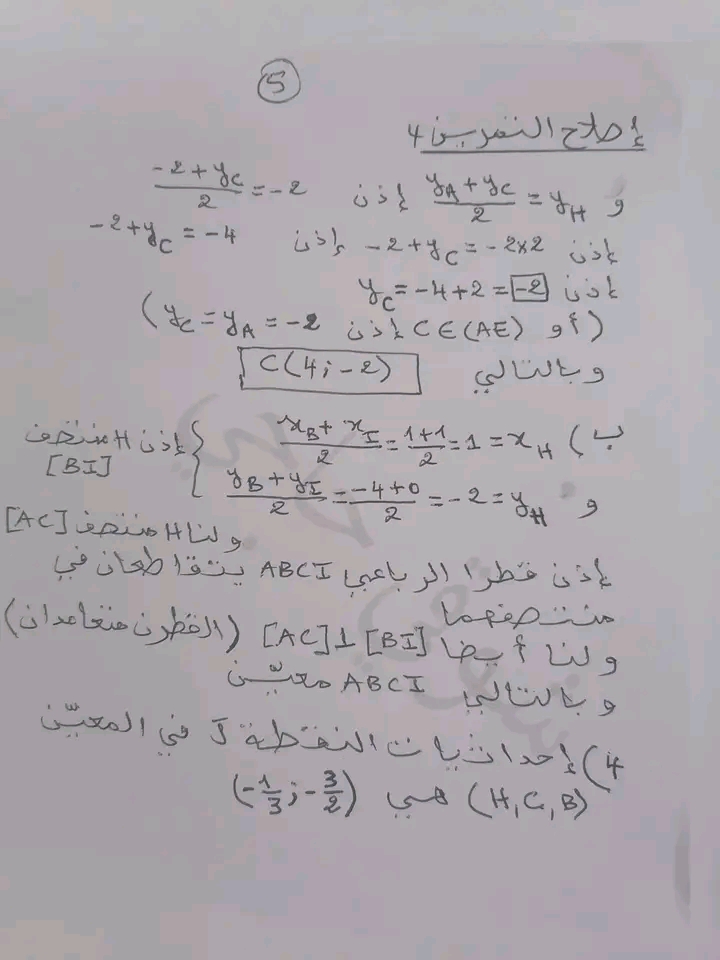 5
إصلاح التمرين 4
و (yA + yC)/2 = yH إذن (-2 + yC)/2 = -2
إذن -2 + yC = -2×2 إذن -2 + yC = -4
إذن yC = -4 + 2 = -2
(أو C∈(AE) إذن yC = yA = -2)
وبالتالي C(4; -2)
ب) (xB + xI)/2 = (1+1)/2 = 1 = xH
و (yB + yI)/2 = (-4+0)/2 = -2 = yH
} إذن H منتصف [BI]
ولنا H منتصف [AC]
إذن قطرا الرباعي ABCI يتقاطعان في
منتصفهما
ولنا أيضا [AC]⊥[BI] (القطرن متعامدان)
وبالتالي ABCI معيّن
4) إحداثيات النقطة J في المعيّن
(H, C, B) هي (-1/3; -3/2)